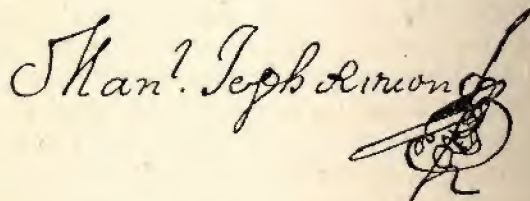 Man^l. Jeph Rincon